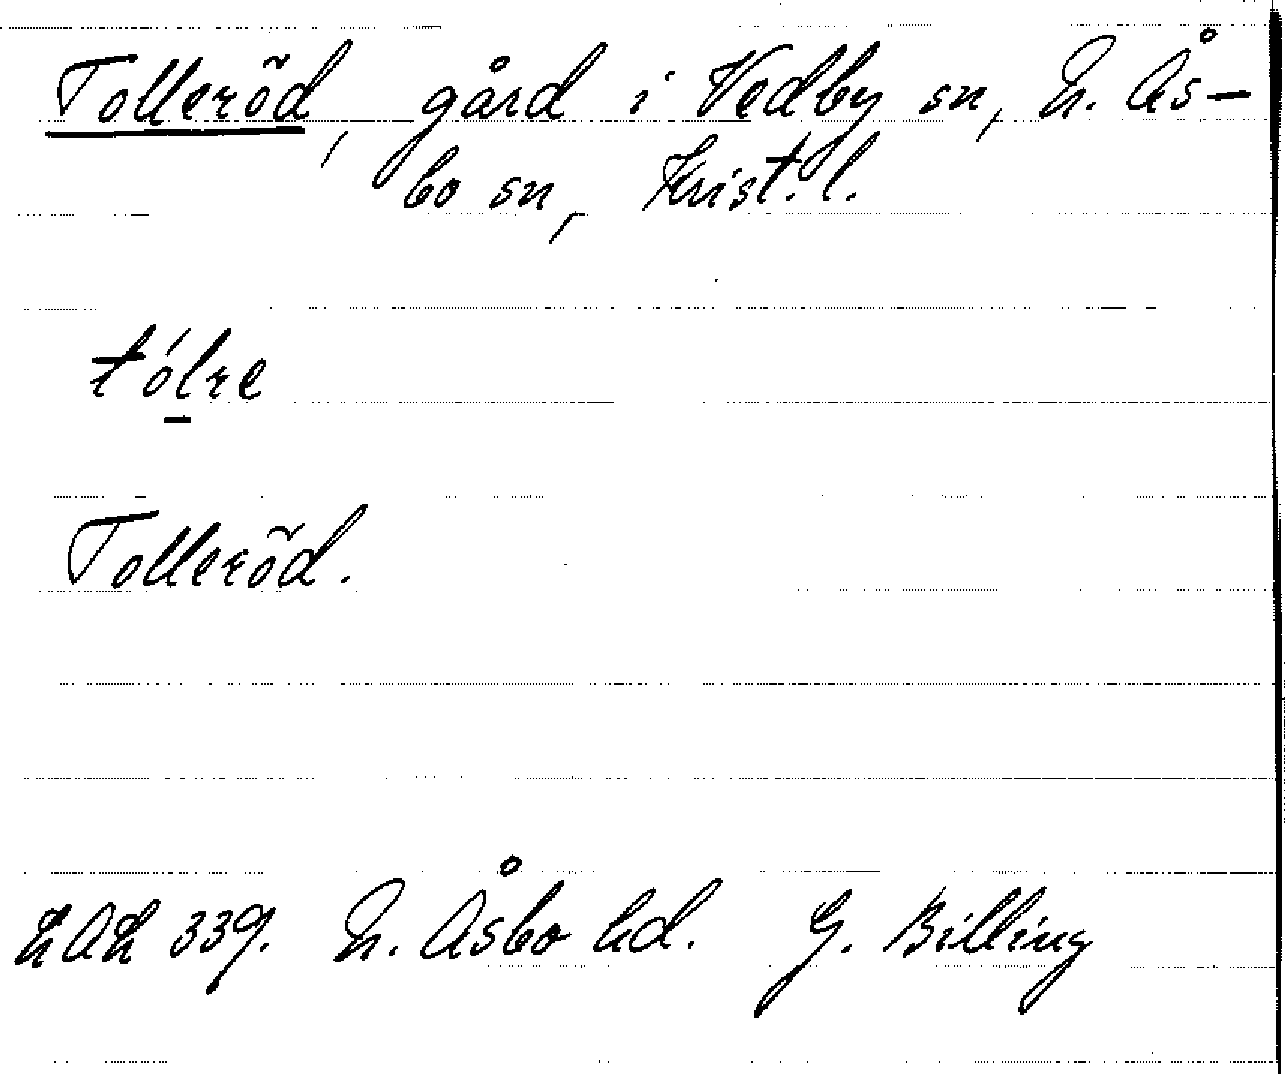 Tolleröd, gård i Vedby sn, N. Ås-
bo sn, Krist. l.
tól̲re
Tolleröd.
LAL 339. N. Åsbo hd. G. Billing